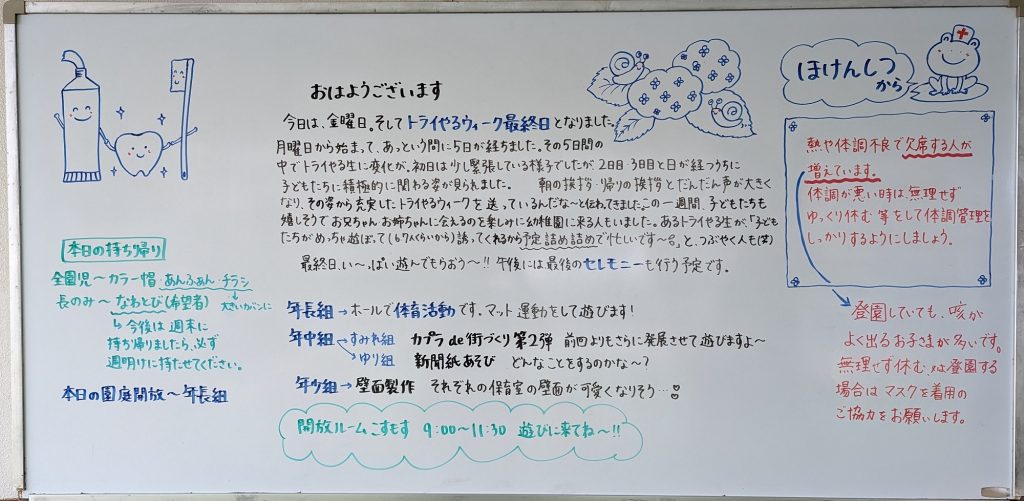 おはようございます
今日は、金曜日。そしてトライやるウィーク最終日となりました。
月曜日から始まって、あっという間に5日が経ちました。その5日間の
中でトライやる生に変化が、初日は少し緊張している様子でしたが2日目・3日目と日が経つうちに
子どもたちに積極的に関わる姿が見られました。 朝の挨拶・帰りの挨拶とだんだん声が大きく
なり、その姿から充実したトライやるウィークを送っているんだな〜と伝わってきました。この一週間、子どもたちも
嬉しそうでお兄ちゃんお姉ちゃんに会えるのを楽しみに幼稚園に来る人もいました。あるトライやる生が、「子ども
たちがめっちゃ遊ぼって(もり人くらいから)誘ってくれるから予定詰め詰めで忙しいです〜。」と、つぶやく人も(笑)
最終日、い〜っぱい遊んでもらおう〜!! 午後には最後のセレモニーも行う予定です。
年長組→ホールで体育活動です。マット運動をして遊びます!
年中組→すみれ組 カプラde街づくり第2弾 前回よりもさらに発展させて遊びますよ〜
→ゆり組 新聞紙あそび どんなことをするのかな〜?
年少組→壁面製作 それぞれの保育室の壁面が可愛くなりそう…
開放ルームこすもす 9:00〜11:30 遊びに来てね〜!!
本日の持ち帰り
全園児〜カラー帽・あんふぁん・チラシ
→大きいカバンに
長のみ〜なわとび(希望者)
→今後は週末に
持ち帰りましたら、必ず
週明けに持たせてください。
本日の園庭開放〜年長組
ほけんしつ
から
熱や体調不良で欠席する人が
増えています。
体調が悪い時は、無理せず
ゆっくり休む等をして体調管理を
しっかりするようにしましょう。
登園していても、咳が
よく出るお子さまが多いです。
無理せず休む、又は登園する
場合はマスクを着用の
ご協力をお願いします。